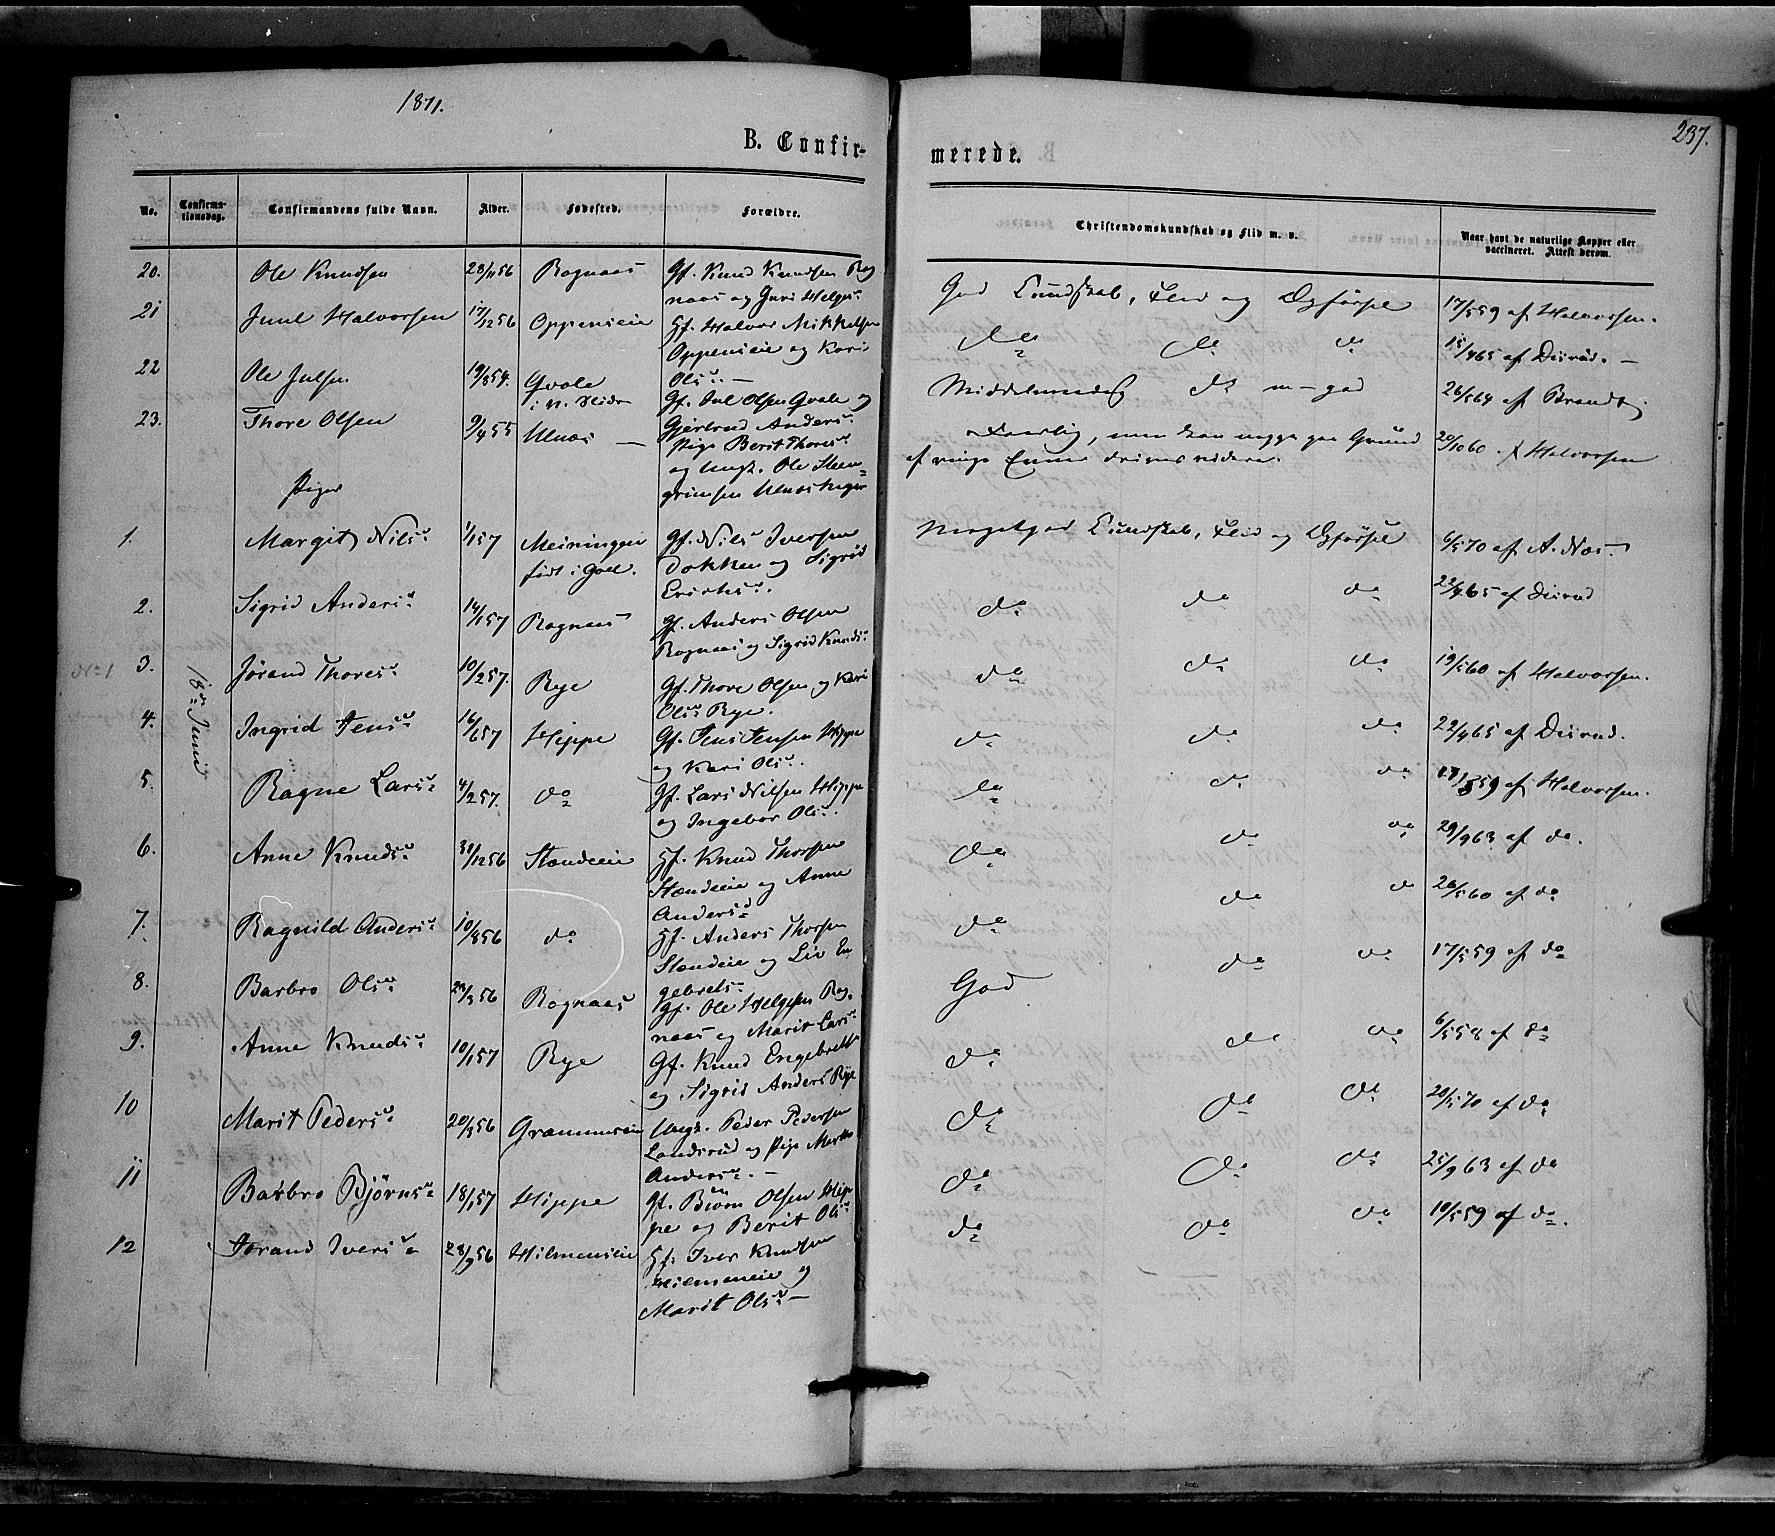 1871.
237.
B. Confir-
merede.
No.
Confirma-
tionsdag.
Confirmandens fulde Navn.
Alder.
Fødested.
Forældre.
Christendomskundskab og Flid m. v.
Naar havt de naturlige Kopper eller
vaccineret. Attest derom.
20. Ole Knudsen 28/1156 Rognaas Gf. Knud Knudsen Rog
naas og Guri Helges. God Kundskab, Flid og Opførsel 17/559 af Halvorsen.
21 Juul Halvorsen 17/1256 Oppenseie Hf. Halvor Mikkelsen
Oppenseie og Kari
Olsd. — do do do 15/465 af Disrud. —
22 Ole Julsen 19/854. Qvale
i N. Slidre Gf. Jul Olsen Qvale og
Gjertrud Andersd. Middelmaadig do m — god 26/564 af Brandt
23. Thore Olsen 9/455 Ulnæs — Pige Berit Thoresd.
og Ungk. Ole Steen-
grimsen Ulnæs
men kan paa Grund
af ringe Evner drives videre. 20/1060 af Halvorsen
Piger
1. Margit Nilsd. 1/157 Meiningen
født i Goel. Gf. Nils Iversen
Dokken og Sigrid
Eriksd. Meget god Kundskab, Flid og Opførsel 6/570 af A. Næs.
2. Sigrid Andersd. 14/157 Rognaas Gf. Anders Olsen
Rognaas og Sigrid Knudsd. do do do 22/465 af Disrud
No 1
18de Juni
3. Jørand Thoresd. 10/257. Rye Gf. Thore Olsen og Kari
Olsd. Rye. do do do 19/560 af Halvorsen.
4. Ingrid Jensd. 16/657 Hippe Gf. Jens Jensen Hippe
og Kari Olsd. do do do 22/465 af Disrud.
5. Ragne Larsd. 4/257. do Gf. Lars Nilsen Hippe
og Ingebor Olsd. do do do 17/559 af Halvorsen.
6. Anne Knudsd. 31/1256 Stendeeie Hf. Knud Thorsen
Stændeie og Anne
Andersd. do do do 29/963 af do.
7. Ragnild Andersd. 10/856 do Hf. Anders Thorsen
Stændeie og Liv En
gebretsd. do do do 26/560 af do
8. Barbro Olsd. 23/356 Rognaas Gf. Ole Helgesen Rog-
naas og Marit Larsd. God do do 17/559 af do
9. Anne Knudsd. 10/157 Rye Gf. Knud Engebrets.
og Sigrid Anders Rye do do do 6/558 af do
10 Marit Pedersd. 20/356 Ungk. Peder Pedersen
Landsrud og Pige
Andersd. — do do do 20/570 af do
11 Barbro Bjørnsd. 18/157 Hippe Gf. Bjørn Olsen Hip
pe og Berit Olsd. do do do 25/963 af do
12 Jørand Iversd. 28/956 Hilmenseie Hf. Iver Knudsen
Hilmeneie og
Marit Olsd. — do do do 19/559 af do.